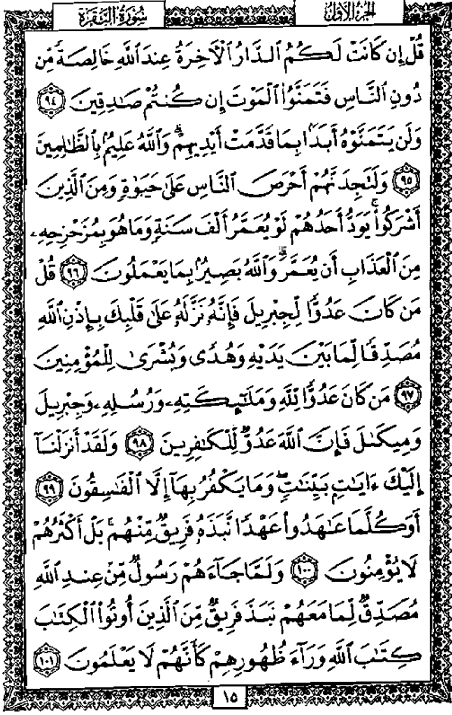 الجزء الأول
سورة البقرة
قُلْ إِن كَانَتْ لَكُمُ الدَّارُ الْآخِرَةُ عِندَ اللَّهِ خَالِصَةً مِّن
دُونِ النَّاسِ فَتَمَنَّوُا الْمَوْتَ إِن كُنتُمْ صَادِقِينَ ٩٤
وَلَن يَتَمَنَّوْهُ أَبَدًا بِمَا قَدَّمَتْ أَيْدِيهِمْ ۗ وَاللَّهُ عَلِيمٌ بِالظَّالِمِينَ
٩٥ وَلَتَجِدَنَّهُمْ أَحْرَصَ النَّاسِ عَلَىٰ حَيَوٰةٍ وَمِنَ الَّذِينَ
أَشْرَكُوا ۚ يَوَدُّ أَحَدُهُمْ لَوْ يُعَمَّرُ أَلْفَ سَنَةٍ وَمَا هُوَ بِمُزَحْزِحِهِ
مِنَ الْعَذَابِ أَن يُعَمَّرَ ۗ وَاللَّهُ بَصِيرٌ بِمَا يَعْمَلُونَ ٩٦ قُلْ
مَن كَانَ عَدُوًّا لِّجِبْرِيلَ فَإِنَّهُ نَزَّلَهُ عَلَىٰ قَلْبِكَ بِإِذْنِ اللَّهِ
مُصَدِّقًا لِّمَا بَيْنَ يَدَيْهِ وَهُدًى وَبُشْرَىٰ لِلْمُؤْمِنِينَ
٩٧ مَن كَانَ عَدُوًّا لِّلَّهِ وَمَلَٰٓئِكَتِهِ وَرُسُلِهِ وَجِبْرِيلَ
وَمِيكَىٰلَ فَإِنَّ اللَّهَ عَدُوٌّ لِّلْكَٰفِرِينَ ٩٨ وَلَقَدْ أَنزَلْنَآ
إِلَيْكَ ءَايَٰتٍ بَيِّنَٰتٍ ۖ وَمَا يَكْفُرُ بِهَآ إِلَّا الْفَٰسِقُونَ ٩٩
أَوَكُلَّمَا عَٰهَدُوا عَهْدًا نَّبَذَهُ فَرِيقٌ مِّنْهُم ۚ بَلْ أَكْثَرُهُمْ
لَا يُؤْمِنُونَ ١٠٠ وَلَمَّا جَآءَهُمْ رَسُولٌ مِّنْ عِندِ اللَّهِ
مُصَدِّقٌ لِّمَا مَعَهُمْ نَبَذَ فَرِيقٌ مِّنَ الَّذِينَ أُوتُوا الْكِتَٰبَ
كِتَٰبَ اللَّهِ وَرَآءَ ظُهُورِهِمْ كَأَنَّهُمْ لَا يَعْلَمُونَ ١٠١
١٥